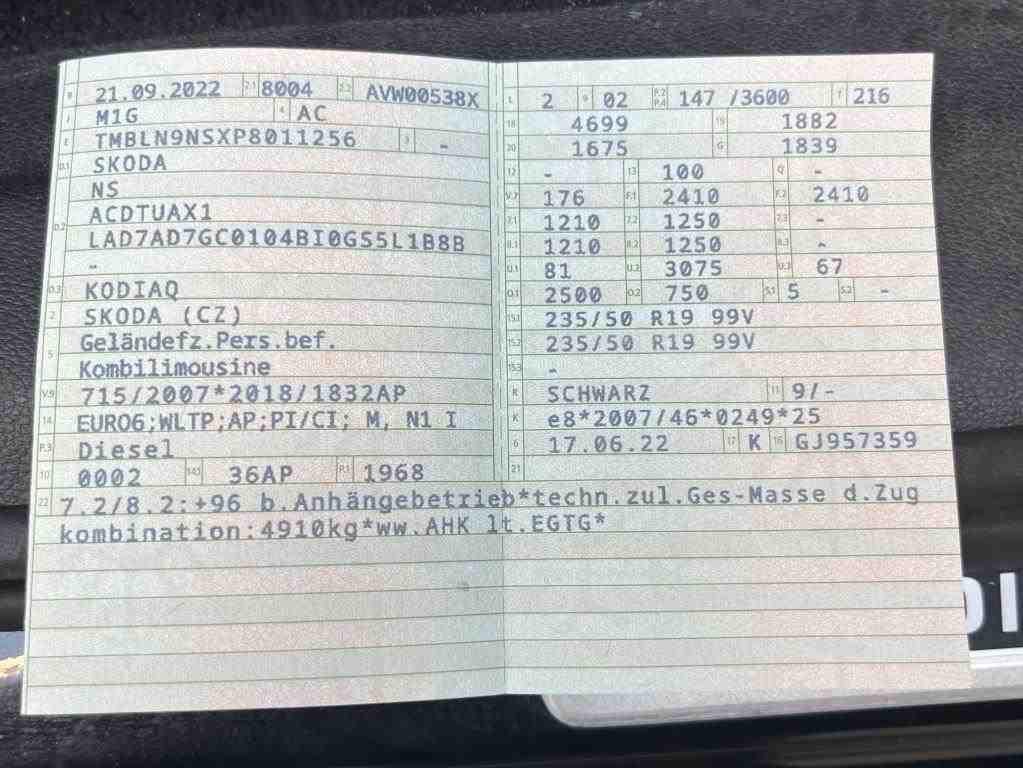 B 21.09.2022 2.1 8004 2.2 AVW00538X
J M1G 4 AC
E TMBLN9NSXP8011256 3 -
D.1 SKODA
NS
D.2 ACDTUAX1
LAD7AD7GC0104BI0GS5L1B8B
-
D.3 KODIAQ
2 SKODA (CZ)
5 Geländefz.Pers.bef.
Kombilimousine
V.9 715/2007*2018/1832AP
14 EURO6;WLTP;AP;PI/CI; M, N1 I
P.3 Diesel
10 0002 14.1 36AP P.1 1968
L 2 9 02 P.2 P.4 147 /3600 T 216
18 4699 19 1882
20 1675 G 1839
12 - 13 100 Q -
V.7 176 F.1 2410 F.2 2410
7.1 1210 7.2 1250 7.3 -
8.1 1210 8.2 1250 8.3 -
U.1 81 U.2 3075 U.3 67
O.1 2500 O.2 750 S.1 5 S.2 -
15.1 235/50 R19 99V
15.2 235/50 R19 99V
15.3 -
R SCHWARZ 11 9/-
K e8*2007/46*0249*25
6 17.06.22 17 K 16 GJ957359
21
22 7.2/8.2:+96 b.Anhängebetrieb*techn.zul.Ges-Masse d.Zug
kombination:4910kg*ww.AHK lt.EGTG*